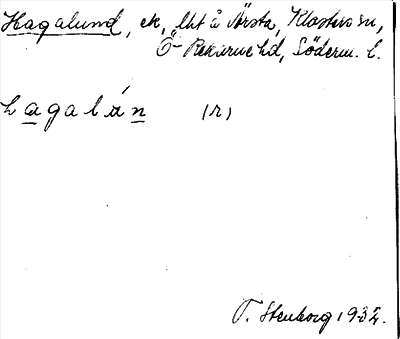 Hagalund, ek, lht å Årsta, Klosters sn,
Ö-Rekarne hd, Söderm. l.
hagalán (r)
T. Stenborg 1932.